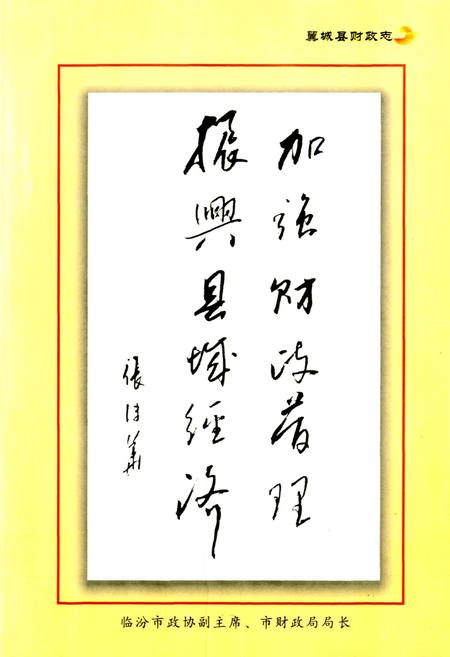 翼城县财政志
加強财政管理
振興县域經济
張
临汾市政协副主席、市财政局局长